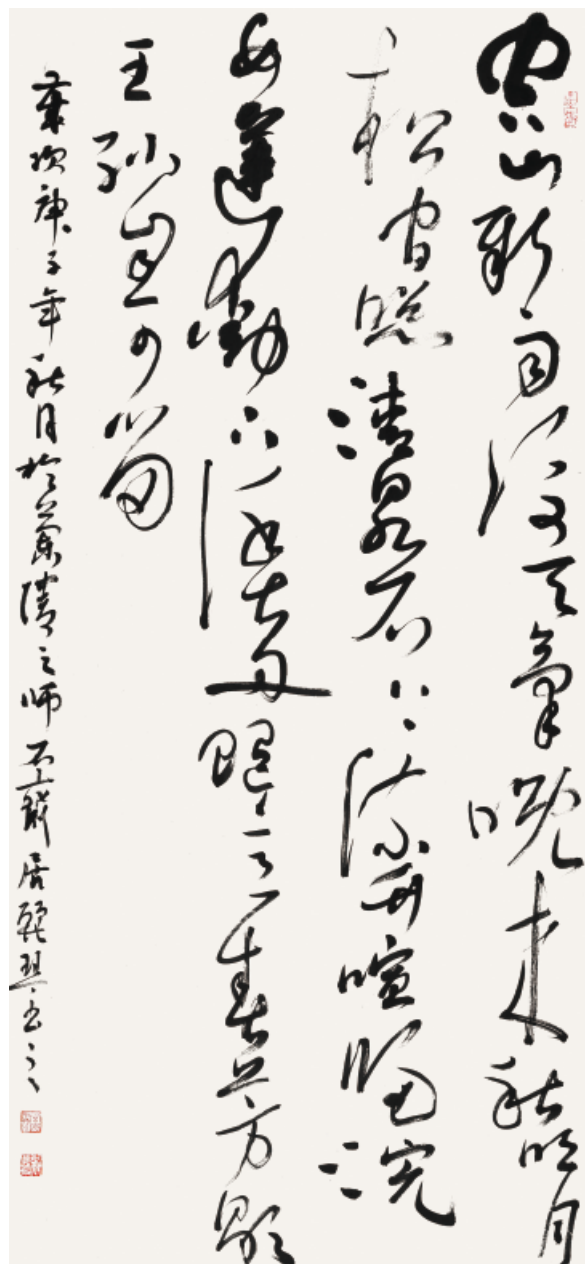 空山新雨後天氣晚來秋明月
松間照清泉石上流竹喧歸浣
女蓮動下漁舟隨意春芳歇
王孫自可留
歲次庚子年秋月於蘭